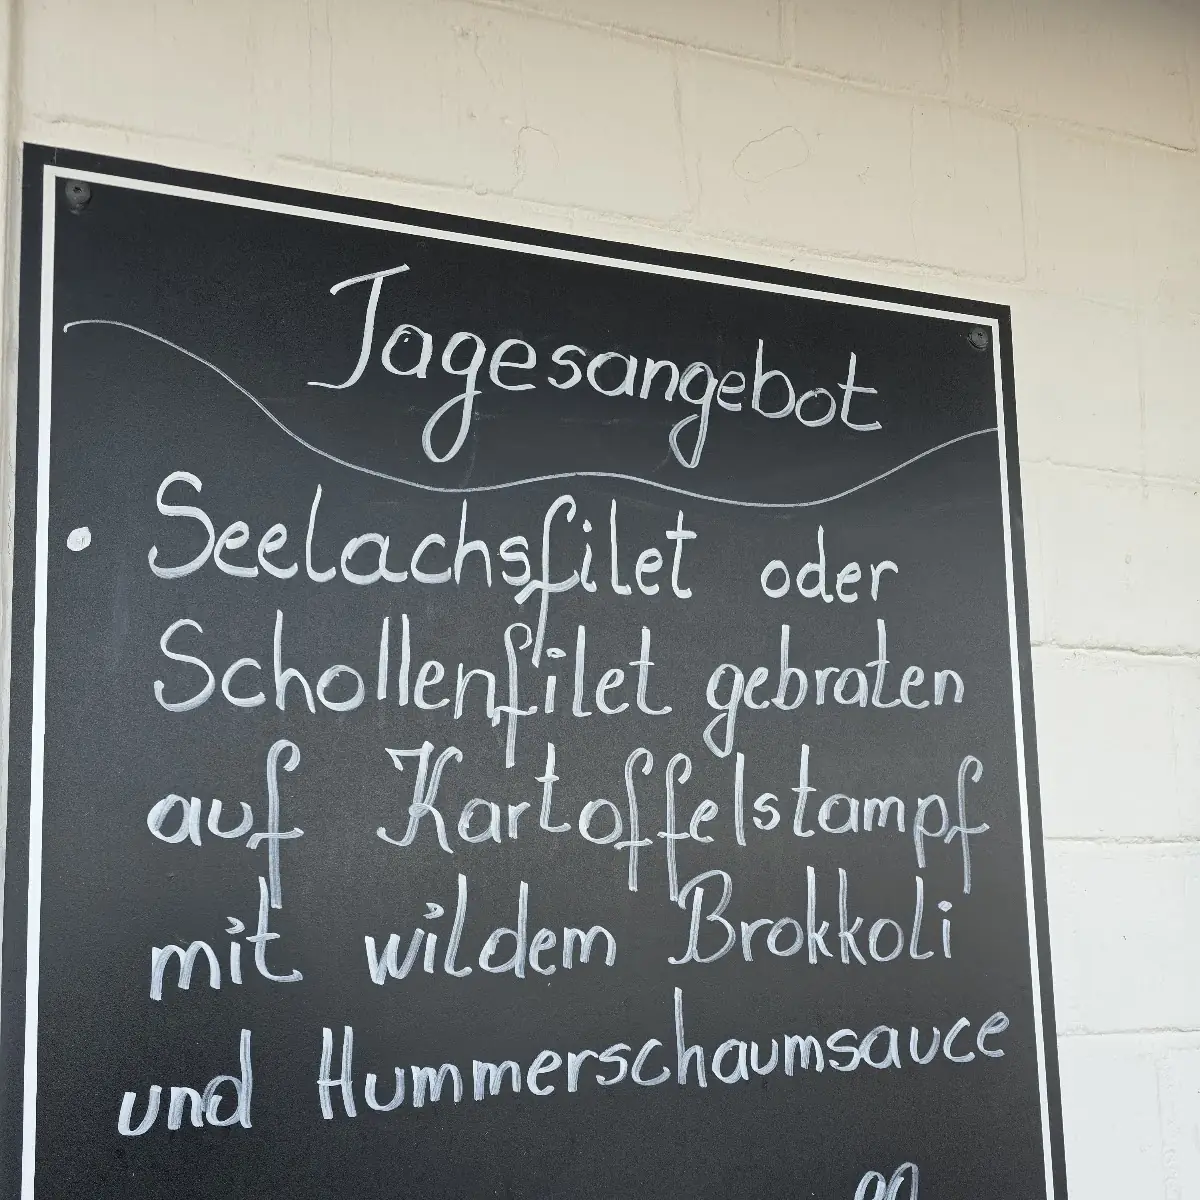 Tagesangebot
• Seelachsfilet oder
Schollenfilet gebraten
auf Kartoffelstampf
mit wildem Brokkoli
und Hummerschaumsauce